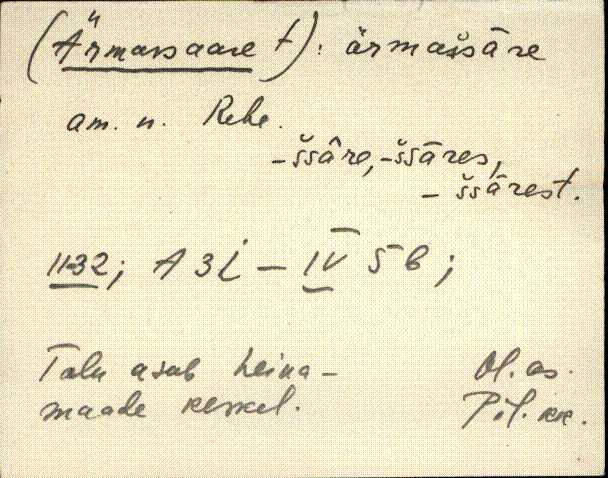 (Ärmassaare t): ärmaššāre
am. n. Rehe.
-ššâre, -ššāres,
- ššārest.
1132; A 3 i – IV 5 b;
Talu asub heina-
maade keskel.
Ol. as.
Pil. kk.